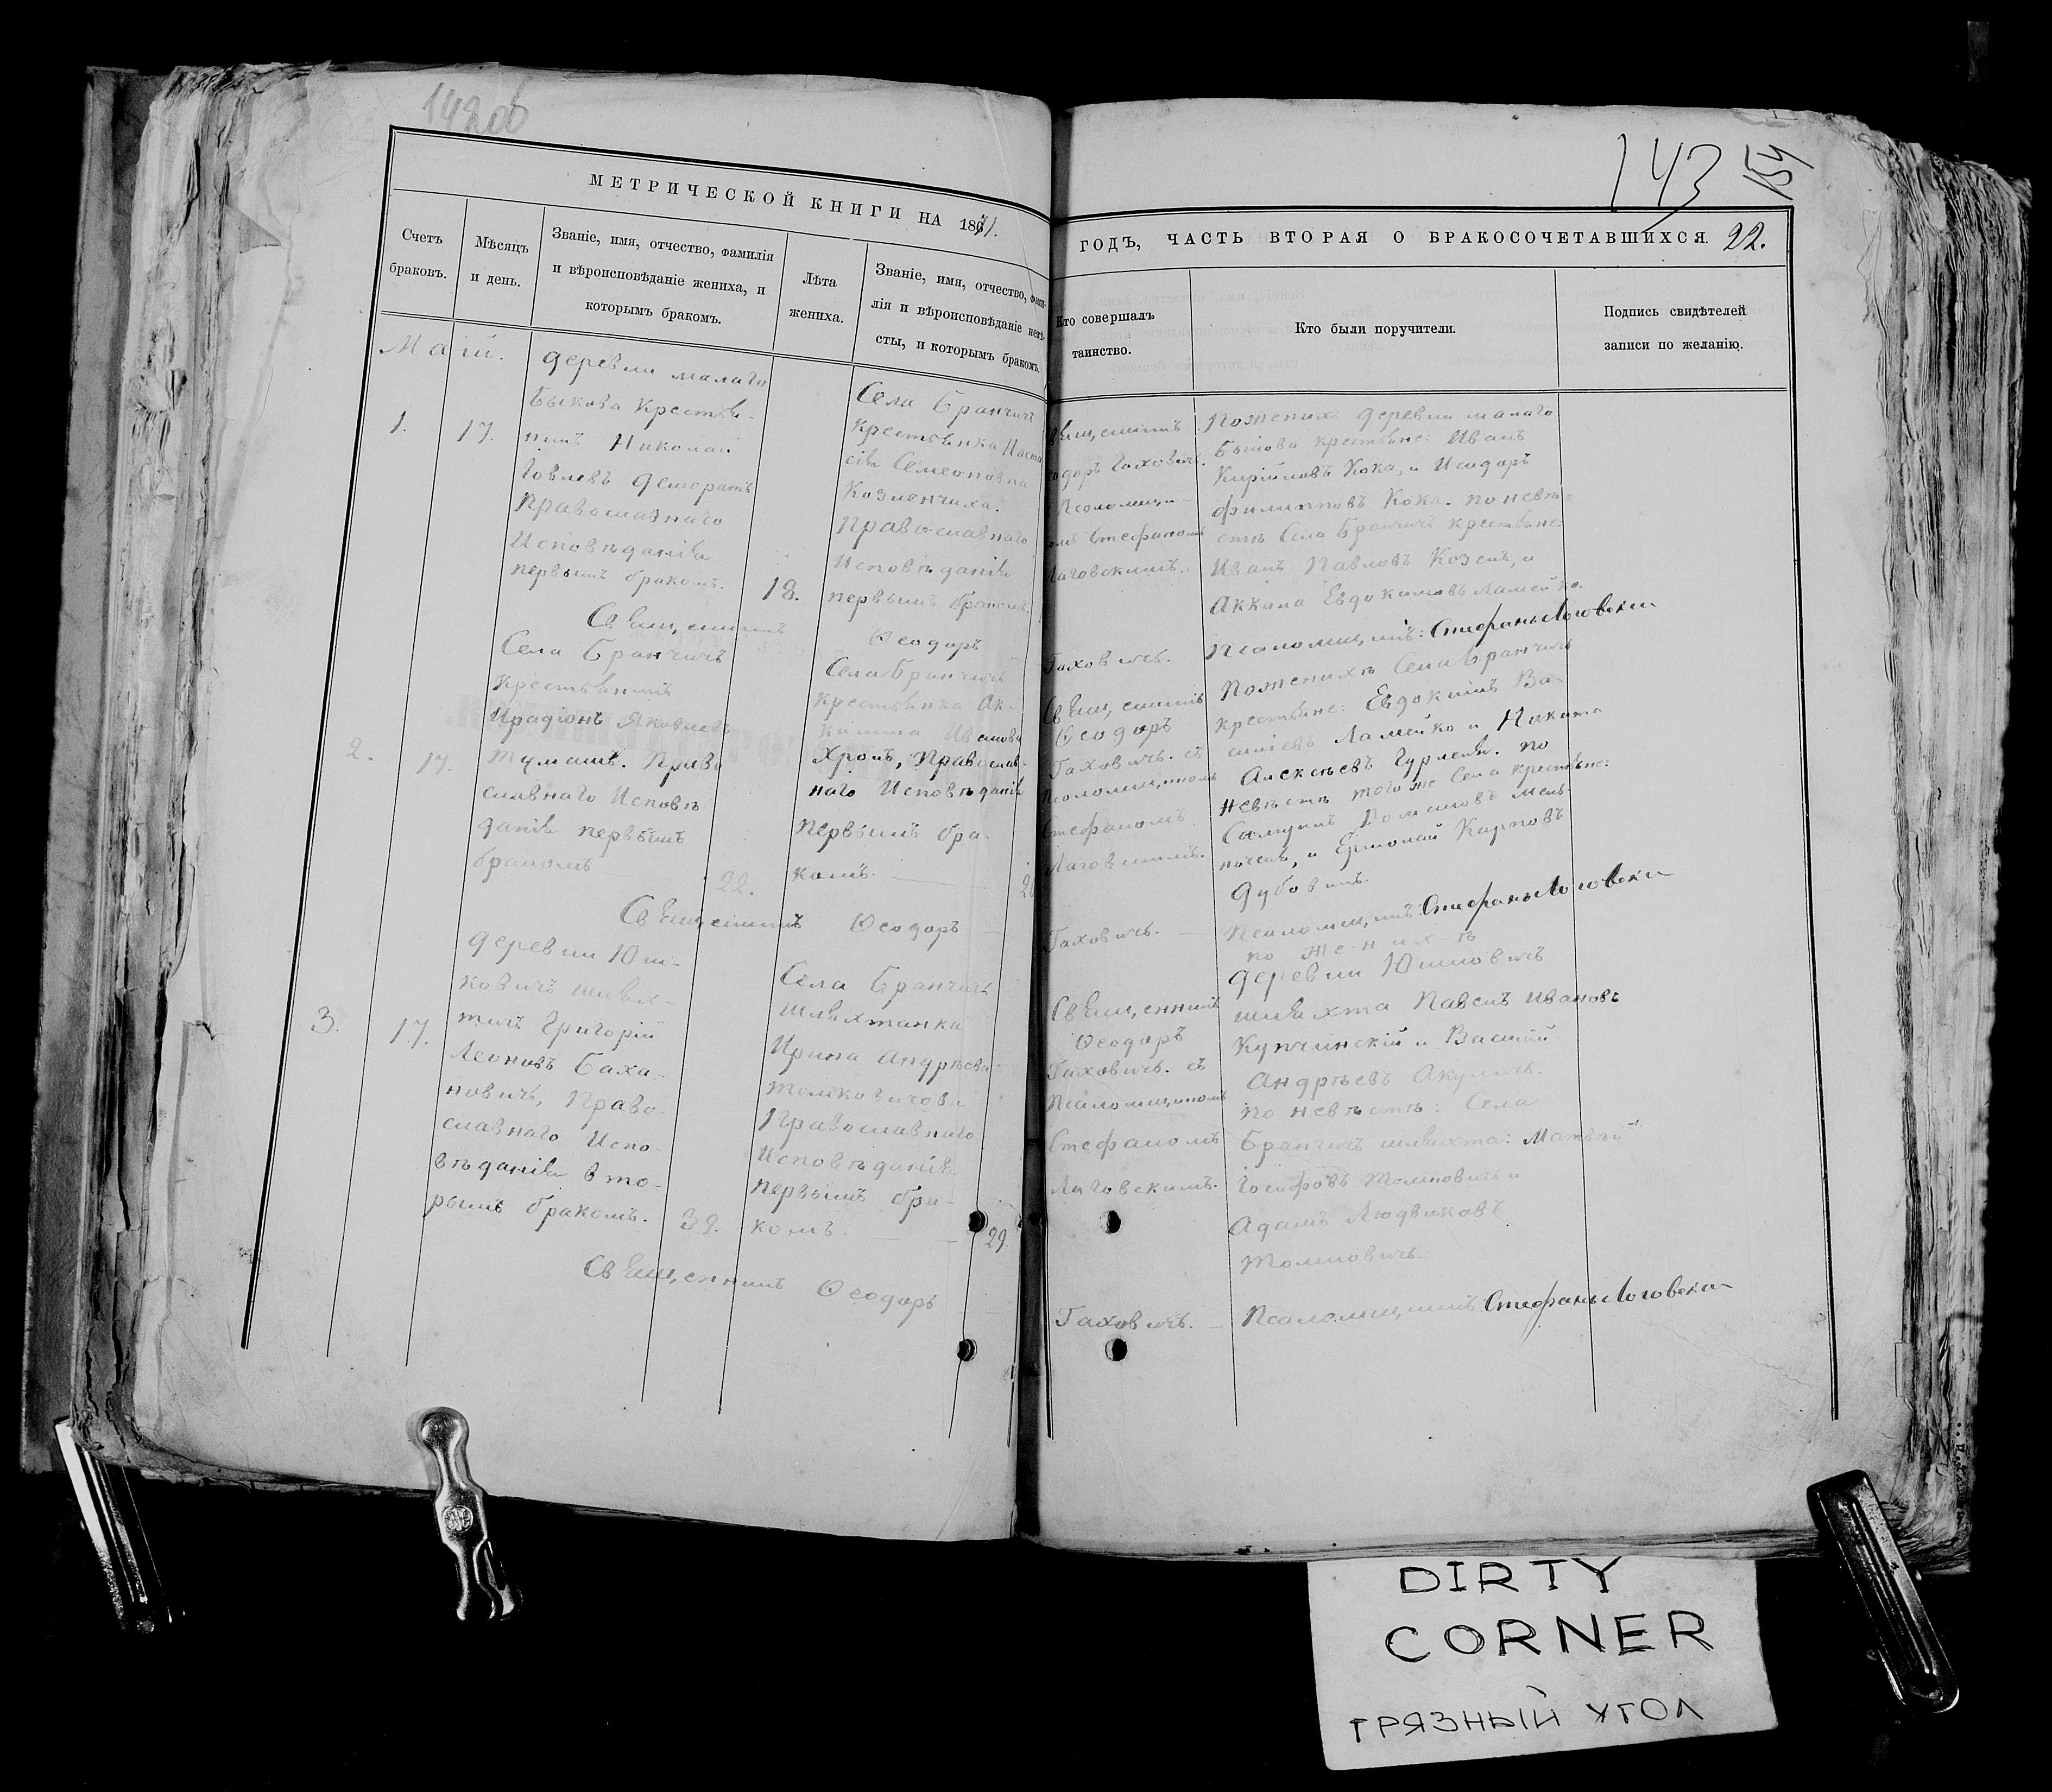 142об
143
154
МЕТРИЧЕСКОЙ КНИГИ НА 1871.
ГОДЪ, ЧАСТЬ ВТОРАЯ О БРАКОСОЧЕТАВШИХСЯ. 22.
Счетъ
браковъ.
Мѣсяцъ
и день.
Званіе, имя, отчество, фамилія
и вѣроисповѣданіе жениха, и
которымъ бракомъ.
Лѣта
жениха.
Званіе, имя, отчество, фами-
лія и вѣроисповѣданіе невѣ-
сты, и которымъ бракомъ.
Кто совершалъ
таинство.
Кто были поручители.
Подпись свидѣтелей
записи по желанію.
Маій.
1.
17.
деревни малаго
Быкова Крестья-
нинъ Николай
Православнаго
Исповѣданія
первымъ бракомъ.
18.
Села Бранчичъ
Крестьянка Наста
сія Семеоновна
Козленчиха.
Православнаго
Исповѣданія
первымъ бракомъ.
Стефаномъ
Лаговскимъ.
По женихѣ деревни малаго
Быкова крестьяне: Иванъ
Кока, и Исидоръ
Филипповъ Кока. по невѣ-
стѣ Села Бранчичъ крестьяне
Иванъ Павловъ Козелъ, и
Евдокимовъ Ламейко.
Священникъ Ѳеодоръ
Гаховичъ.
Псаломщикъ: Стефанъ Лаговски
2.
17.
Села Бранчичъ
Крестьянинъ
Ирадіонъ Яковлевъ
Тумашъ. Право
славнаго Исповѣ
данія первымъ
бракомъ
22.
Села Бранчичъ
Крестьянка Ак-
Иванова
Хромъ, Православ-
наго Исповѣданія
Первымъ бра-
комъ.
Священникъ
Ѳеодоръ
Гаховичъ. съ
Псаломщикомъ
Стефаномъ
Лаговскимъ.
По женихѣ Села Бранчичъ
крестьяне: Евдокимъ Ва-
силіевъ Ламейко и Никита
Алексѣевъ Гурленя. по
невѣстѣ того же Села крестьяне:
и Ермолай Карповъ
Дубовикъ.
Священникъ Ѳеодоръ
Гаховичъ.
Псаломщикъ: Стефанъ Лаговски
3.
17.
деревни Юш-
ковичъ шлях-
тичъ Григорій
Леоновъ Баха-
новичъ, Право-
славнаго Испо-
вѣданія вто-
рымъ бракомъ.
39.
Села Бранчичъ
Шляхтанка
Ирина Андрѣева
Православнаго
Исповѣданія
первымъ бра-
комъ.
29.
Священникъ
Ѳеодоръ
Гаховичъ. съ
Псаломщикомъ
Стефаномъ
Лаговскимъ.
по женихѣ
деревни Юшковичъ
шляхта Павелъ Ивановъ
Купчинскій и Василій
Андрѣевъ Акуличъ.
по невѣстѣ: Села
Бранчичъ шляхта: Матвѣй
Іосифовъ Толковичъ и
Адамъ Людвиковъ
Толковичъ.
Священникъ Ѳеодоръ
Гаховичъ.
Псаломщикъ: Стефанъ Лаговски
DIRTY
CORNER
ГРЯЗНЫЙ УГОЛ